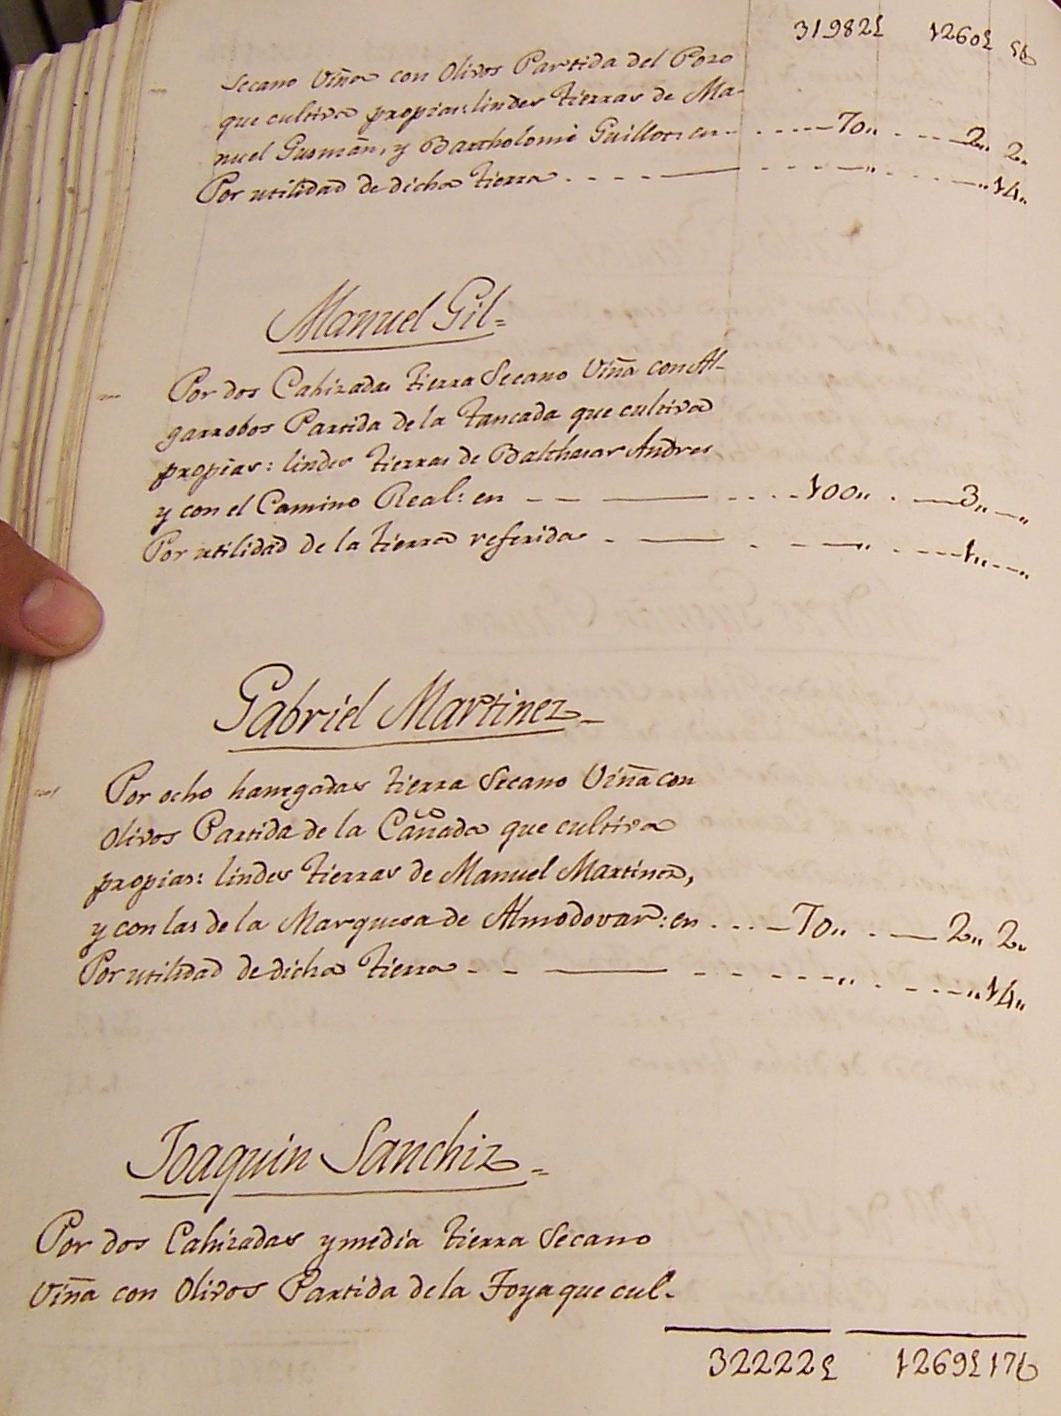 31982£ 1260£ 5₰
Secano Viña con Olivos Partida del Pozo
que cultiva propias: lindes tierras de Ma-
nuel Gusmán, y Bartholomè Guillot: en - . . . . - - - 70,, . . - - - 2,, 2,,
Por utilidad de dicha tierra . - - - . —— . - . . - - ,, . . - . - - ,, 14,,
Manuel Gil=
Por dos Cahizadas tierra Secano Viña con Al-
garrobos Partida de la Tancada que cultiva
propias: lindes tierras de Balthasar Andres
y con el Camino Real: en - - —— - . . . 100,, . - — 3,, — ,,
Por utilidad de la tierra referida . —— . - — ,, . . - - - 1,, - - ,,
Gabriel Martinez_
Por ocho hanegadas tierra Secano Viña con
Olivos Partida de la Cañada que cultiva
propias: lindes tierras de Manuel Martinez,
y con las de la Marquesa de Almodovar: en . . . - 70,, . — 2,, 2,,
Por utilidad de dicha tierra - - —— - - - - - - ,, . . - . - - ,, 14,,
Joaquin Sanchiz_=
Por dos Cahizadas y media tierra Secano
Viña con Olivos Partida de la Foya que cul-
32222£ 1269£ 17₰